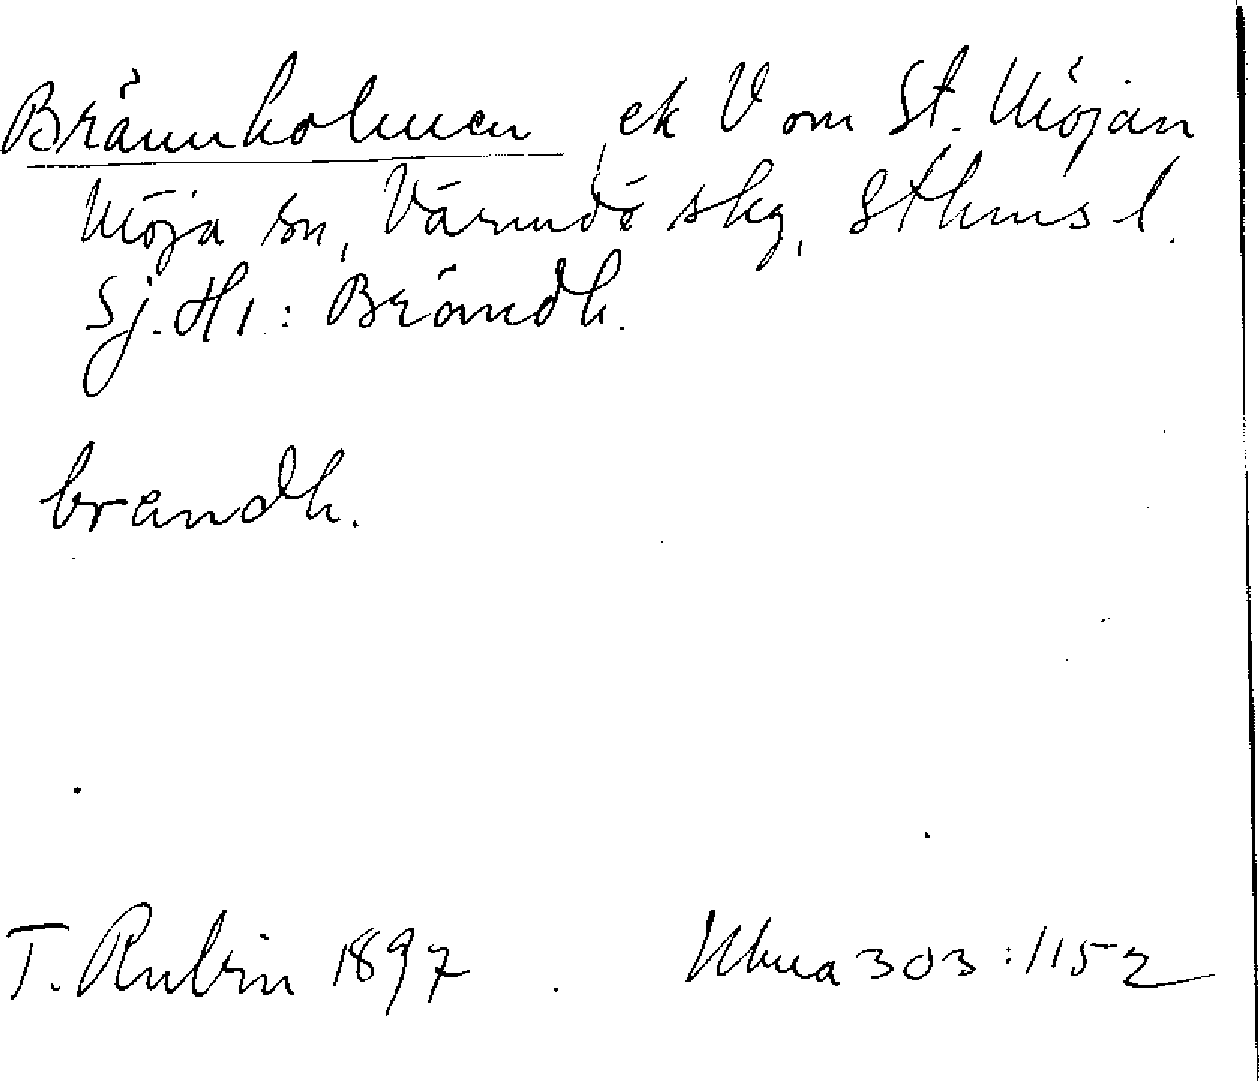 Brännholmen, ek V om St. Möjan
Möja sn, Värmdö skg, Sthms l.
Sj. H1.: Brändh.
brandh.
T. Rubin 1897
303:1152